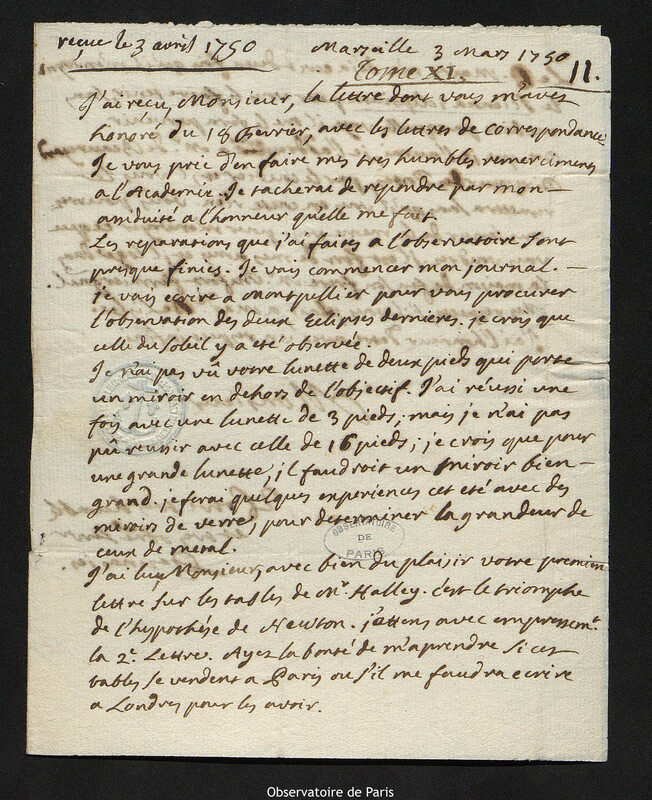 reçue le 3 avril 1750
Marseille 3 Mars 1750
Tome XI.
11.
J'ai reçu, Monsieur, la lettre dont vous m'avez
honoré du 18 fevrier, avec les lettres de correspondance
Je vous prie d'en faire mes tres humbles remerciments
a l'Academie. Je tacherai de repondre par mon
assiduité a l'honneur qu'elle me fait.
Les reparations que j'ai faites a l'observatoire sont
presque finies. Je vais commencer mon journal. —
je vais ecrire a Montpellier pour vous procurer
l'observation des deux Eclipses dernieres. je crois que
celle du Soleil y a eté observée.
Je n'ai pas vû votre lunette de deux pieds qui porte
un miroir en dehors de l'objectif. J'ai réussi une
fois avec une lunette de 3 pieds; mais je n'ai pas
pû reussir avec celle de 16 pieds; je crois que pour
une grande lunette, il faudroit un miroir bien
grand. je ferai quelques experiences cet eté avec des
miroirs de verre, pour determiner la grandeur de
ceux de metal.
OBSERVATOIRE
DE
PARIS
J'ai lu, Monsieur, avec bien du plaisir votre premiere
lettre sur les tables de Mr. Halley. c'est le triomphe
de l'hypothése de Newton. j'attens avec empressemt.
la 2e. Lettre. Ayez la bonté de m'aprendre si ces
tables se vendent a Paris ou s'il me faudra ecrire
a Londres pour les avoir.
Observatoire de Paris